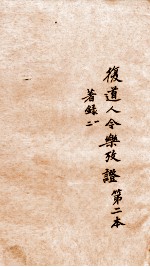 復道人今樂攷證 第二本
著錄一
二